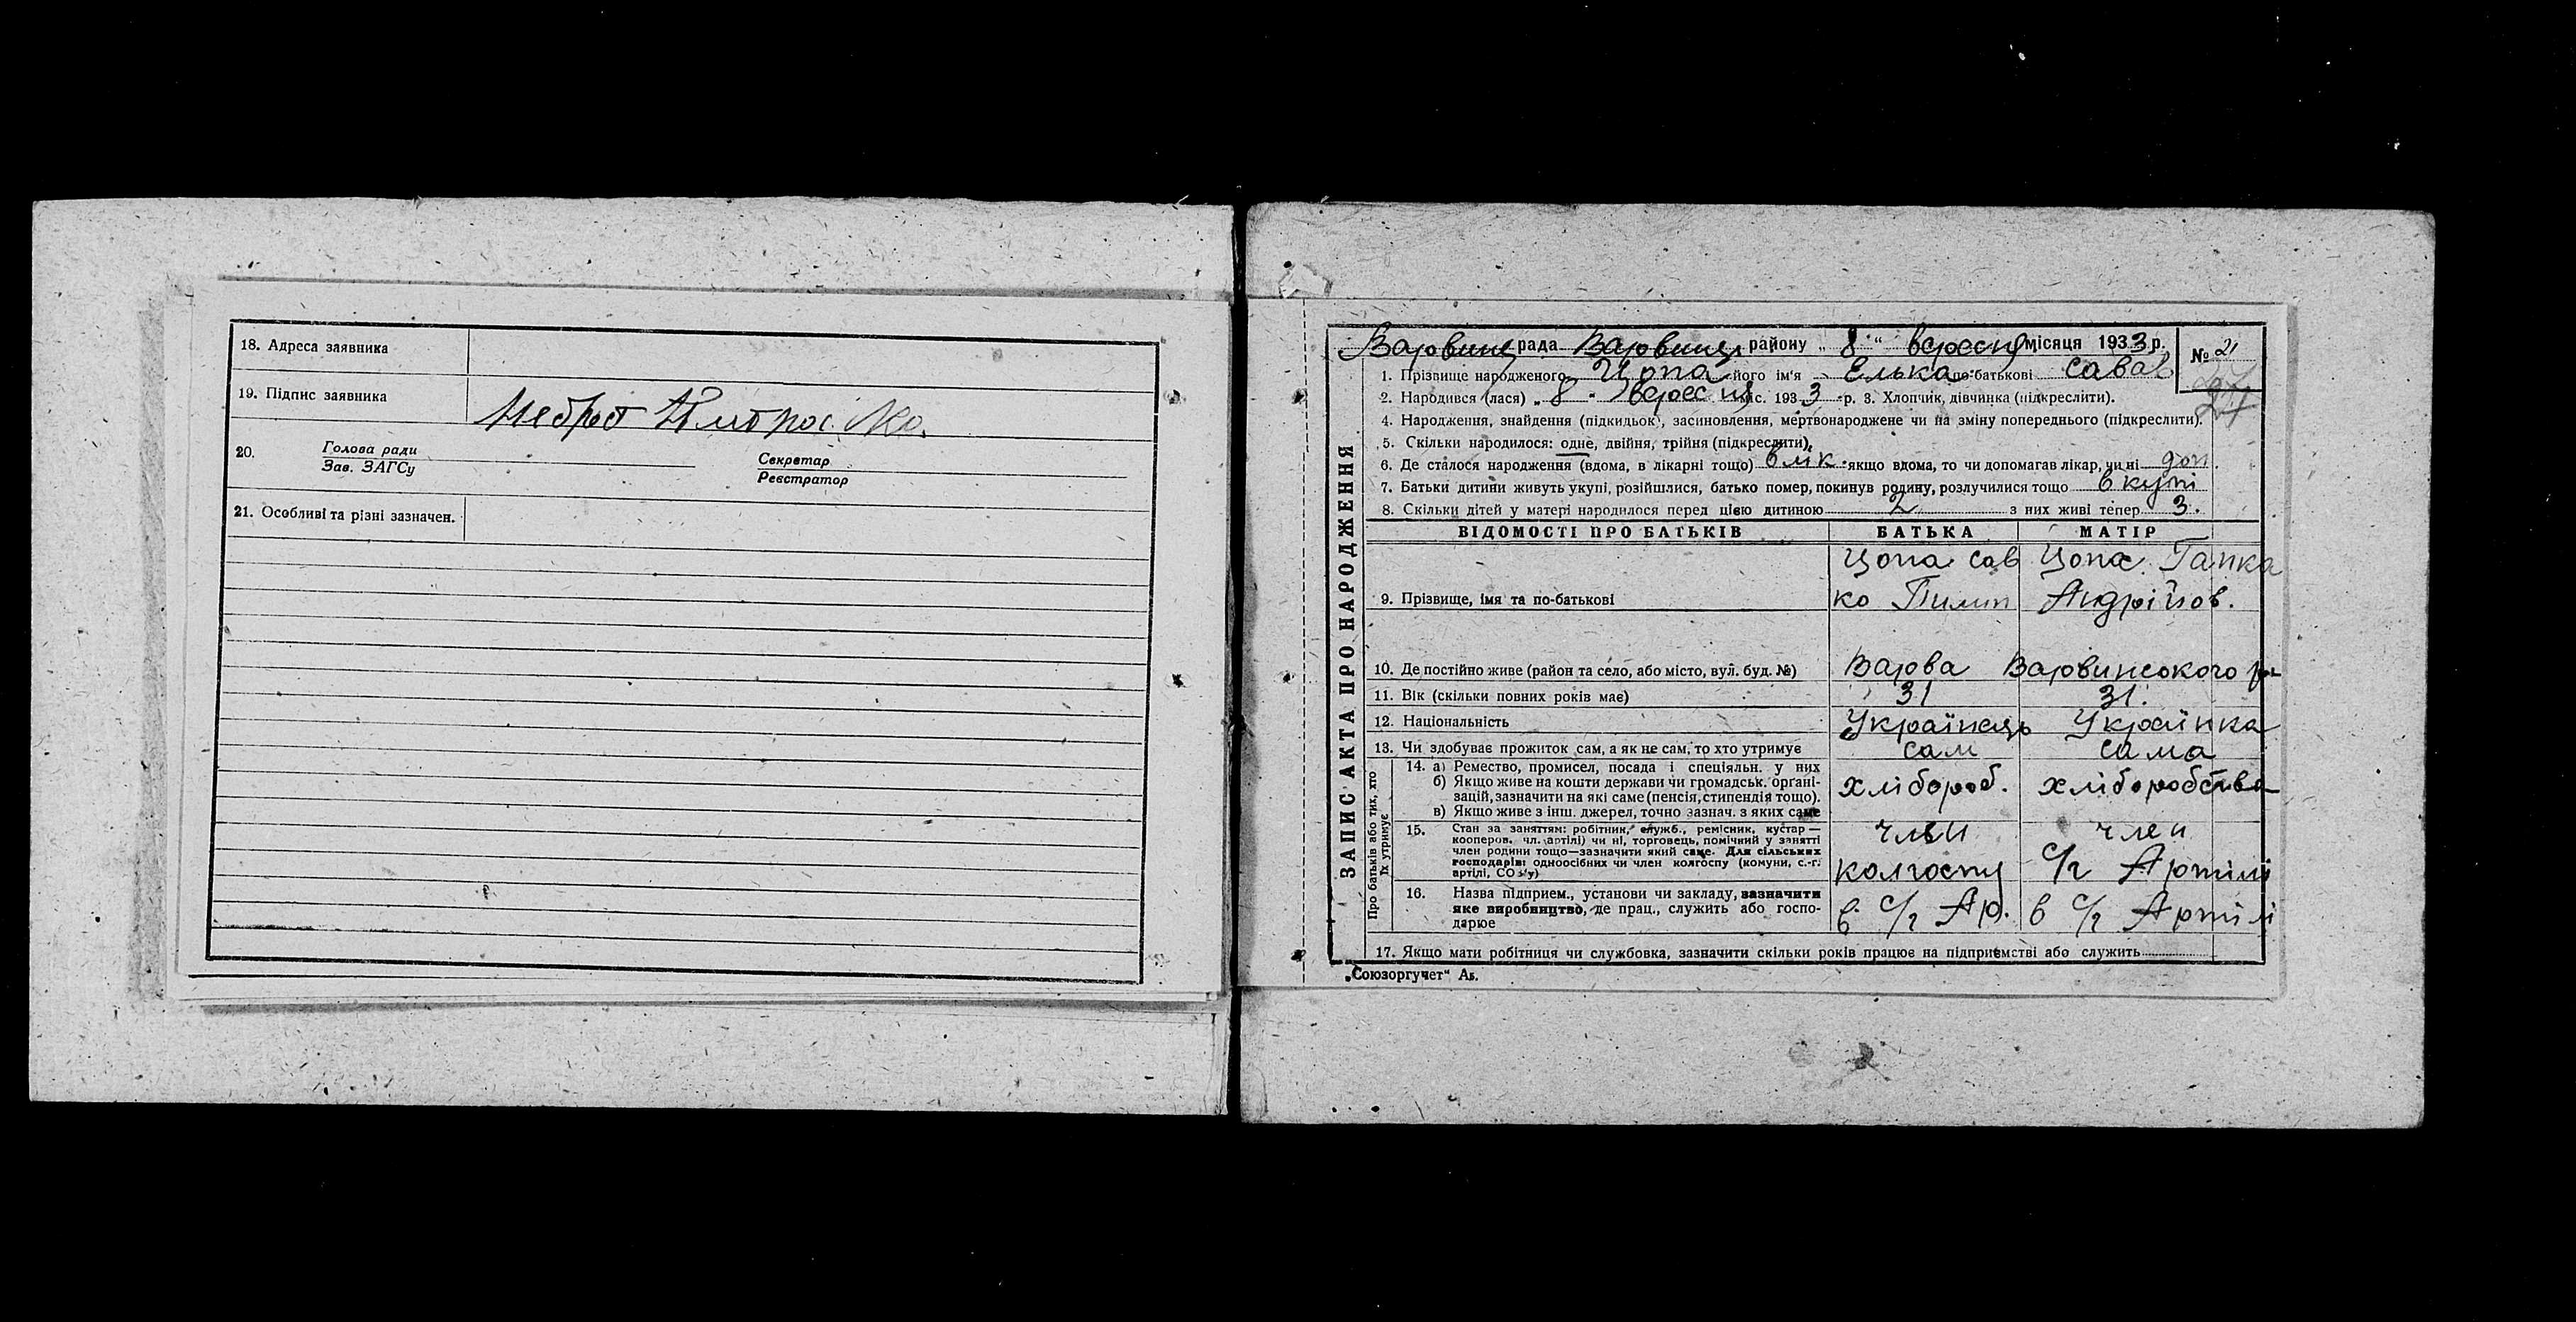 18. Адреса заявника
19. Підпис заявника
20. Голова ради Секретар
Зав. ЗАГСу Реєстратор
21. Особливі та різні зазначен.
ЗАПИС АКТА ПРО НАРОДЖЕННЯ
Варвинс рада Варвинсь району „ 8 “ вересня місяця 1933 р. № 21
27
1. Прізвище народженого Цопа його ім'я Елька по батькові Савов
2. Народився (лася) „ 8 . вересня міс. 1933 р. 3. Хлопчик, дівчинка (підкреслити).
4. Народження, знайдення (підкидьок), засиновлення, мертвонароджене чи на зміну попереднього (підкреслити).
5. Скільки народилося: одне, двійня, трійня (підкреслити).
6. Де сталося народження (вдома, в лікарні тощо) в лік. якщо вдома, то чи допомагав лікар, чи ні доп.
7. Батьки дитини живуть укупі, розійшлися, батько помер, покинув родину, розлучилися тощо вкупі
8. Скільки дітей у матері народилося перед цією дитиною 2 з них живі тепер 3.
ВІДОМОСТІ ПРО БАТЬКІВ БАТЬКА МАТІР
Цопа Сав Цопа. Гапка
9. Прізвище, імя та по-батькові ко Пилип Андрійов.
10. Де постійно живе (район та село, або місто, вул. буд. №) Варва Варвинського р
11. Вік (скільки повних років має) 31 31.
12. Національність Українець Українка
13. Чи здобуває прожиток сам, а як не сам, то хто утримує сам сама
Про батьків або тих, хто їх утримує
14. а) Ремество, промисел, посада і спеціяльн. у них
б) Якщо живе на кошти держави чи громадськ. орґані- хлібороб. хліборобства
зацій, зазначити на які саме (пенсія, стипендія тощо).
в) Якщо живе з інш. джерел, точно зазнач. з яких саме
15. Стан за заняттям: робітник, служб., ремісник, кустар — член член
кооперов. чл. (артілі) чи ні, торговець, помічний у занятті
член родини тощо—зазначити який саме. Для сільських
господарів: одноосібних чи член колгоспу (комуни, с.-г. колгоспу С/г Артілі
артілі, СОЗ'у)
16. Назва підприєм., установи чи закладу, зазначити
яке виробництво, де прац., служить або госпо- в С/г Ар. в С/г Артілі
дарює
17. Якщо мати робітниця чи службовка, зазначити скільки років працює на підприємстві або служить
„Союзоргучет“ Аз.